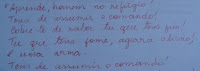 "Aprende, homem no refúgio!
Tens de assumir o comando!
Sobe-te de valor tu que tens
Tu que tens fome, agarra o livro:
é uma arma.
Tens de assumir o comando